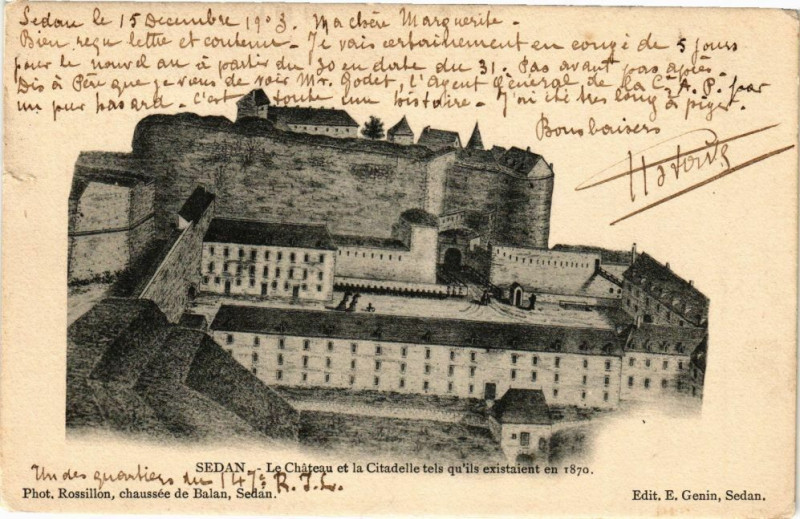 Sedan le 15 Decembre 1903. Ma chère Marguerite -
Bien reçu lettre et contenu - Je vais certainement en congé de 5 jours
pour le nouvel an à partir du 30 en date du 31. Pas avant pas après.
Dis à Père que je viens de voir Mr. Godet, l'agent General de la Cie A. P. par
un pur hasard - C'est toute une histoire - J'ai été très long à piger.
Bons baisers
SEDAN. - Le Château et la Citadelle tels qu'ils existaient en 1870.
Un des quartiers du 147e R.I.
Phot. Rossillon, chaussée de Balan, Sedan.
Edit. E. Genin, Sedan.